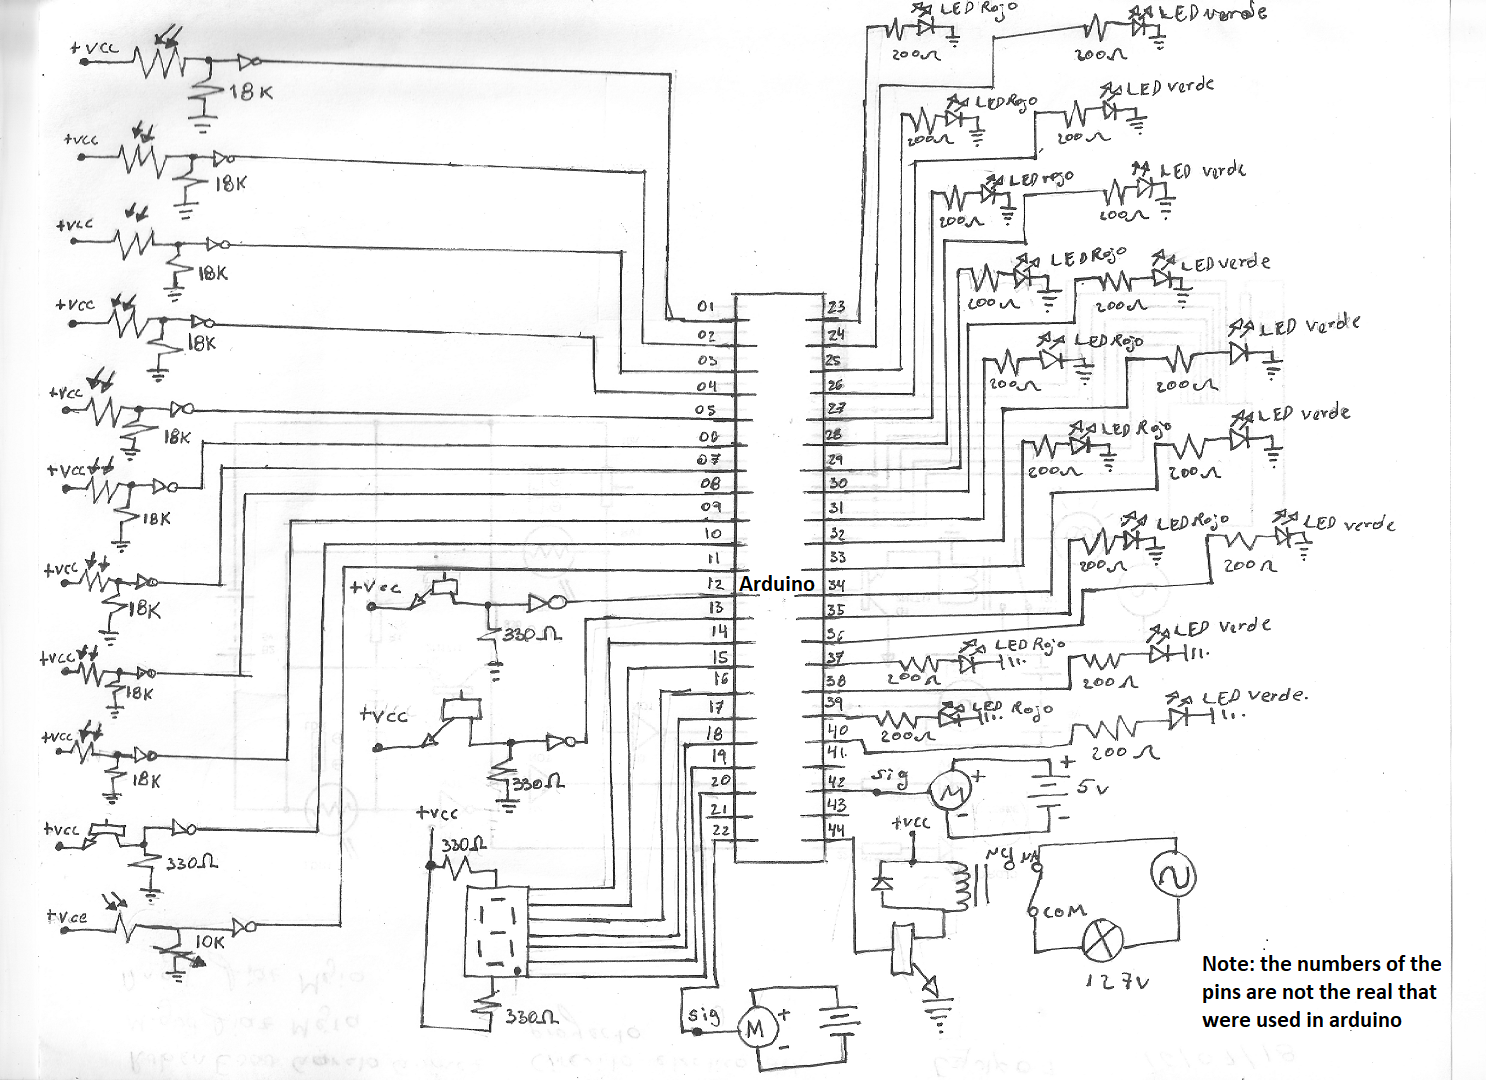 +vcc
18K
+vcc
18K
+vcc
18K
+vcc
18K
+vcc
18K
+vcc
18K
+vcc
18K
+vcc
18K
+vcc
18K
+vcc
330Ω
+vcc
10K
+vcc
330Ω
+vcc
330Ω
+vcc
330Ω
330Ω
01
02
03
04
05
06
07
08
09
10
11
12
13
14
15
16
17
18
19
20
21
22
Arduino
23
24
25
26
27
28
29
30
31
32
33
34
35
36
37
38
39
40
41
42
43
44
LED Rojo
200Ω
LED verde
200Ω
LED Rojo
200Ω
LED verde
200Ω
LED rojo
200Ω
LED verde
200Ω
LED Rojo
200Ω
LED verde
200Ω
LED Rojo
200Ω
LED verde
200Ω
LED Rojo
200Ω
LED verde
200Ω
LED Rojo
200Ω
LED verde
200Ω
LED Rojo
200Ω
LED verde
200Ω
LED Rojo
200Ω
LED verde.
200Ω
sig
M
+
-
+
-
5v
+vcc
NC
NA
COM
127v
sig
M
+
-
Note: the numbers of the
pins are not the real that
were used in arduino